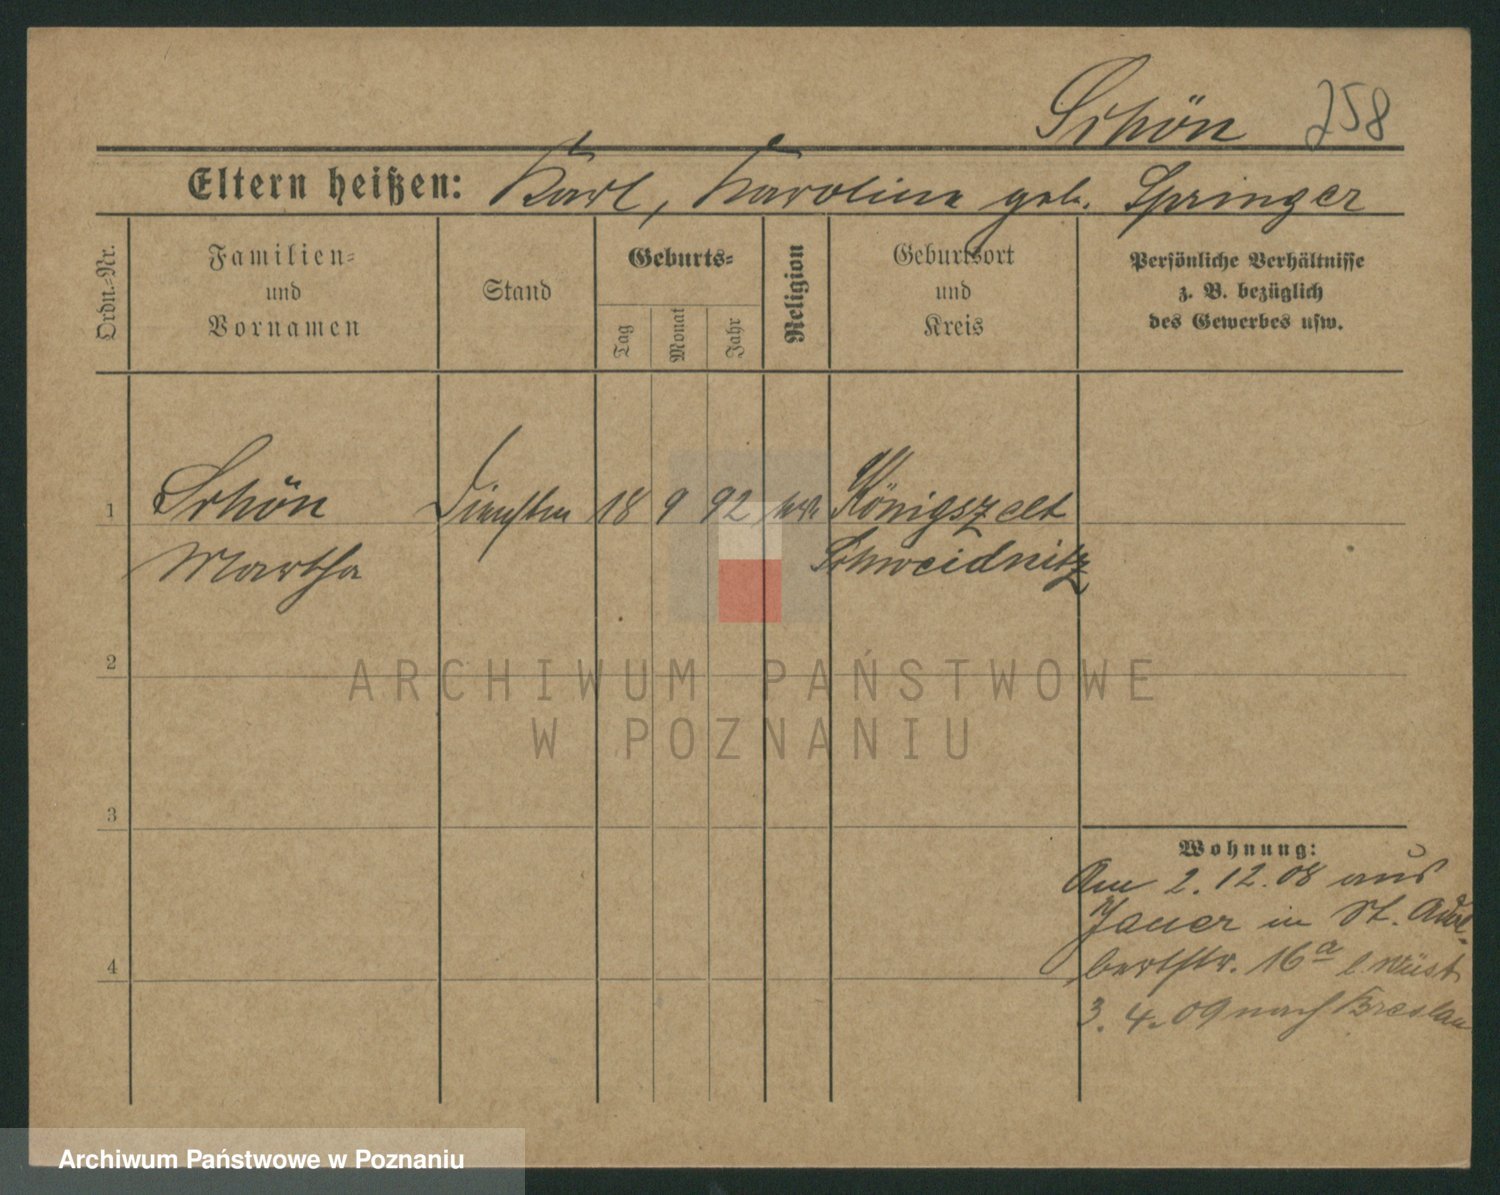 Schön 258
Eltern heißen: Karl, Karoline geb. Springer
Ordn.-Nr.
Familien-
und
Vornamen
Stand
Geburts-
Tag
Monat
Jahr
Religion
Geburtsort
und
Kreis
Persönliche Verhältnisse
z. B. bezüglich
des Gewerbes usw.
1
Schön
Martha
18 9 92
Königszelt
Schweidnitz
2
3
4
Wohnung:
Am 2.12.08 aus
Jauer in St. Adal-
bertstr. 16a b. Wüst
3.4.09 nach Breslau
ARCHIWUM PAŃSTWOWE
W POZNANIU
Archiwum Państwowe w Poznaniu